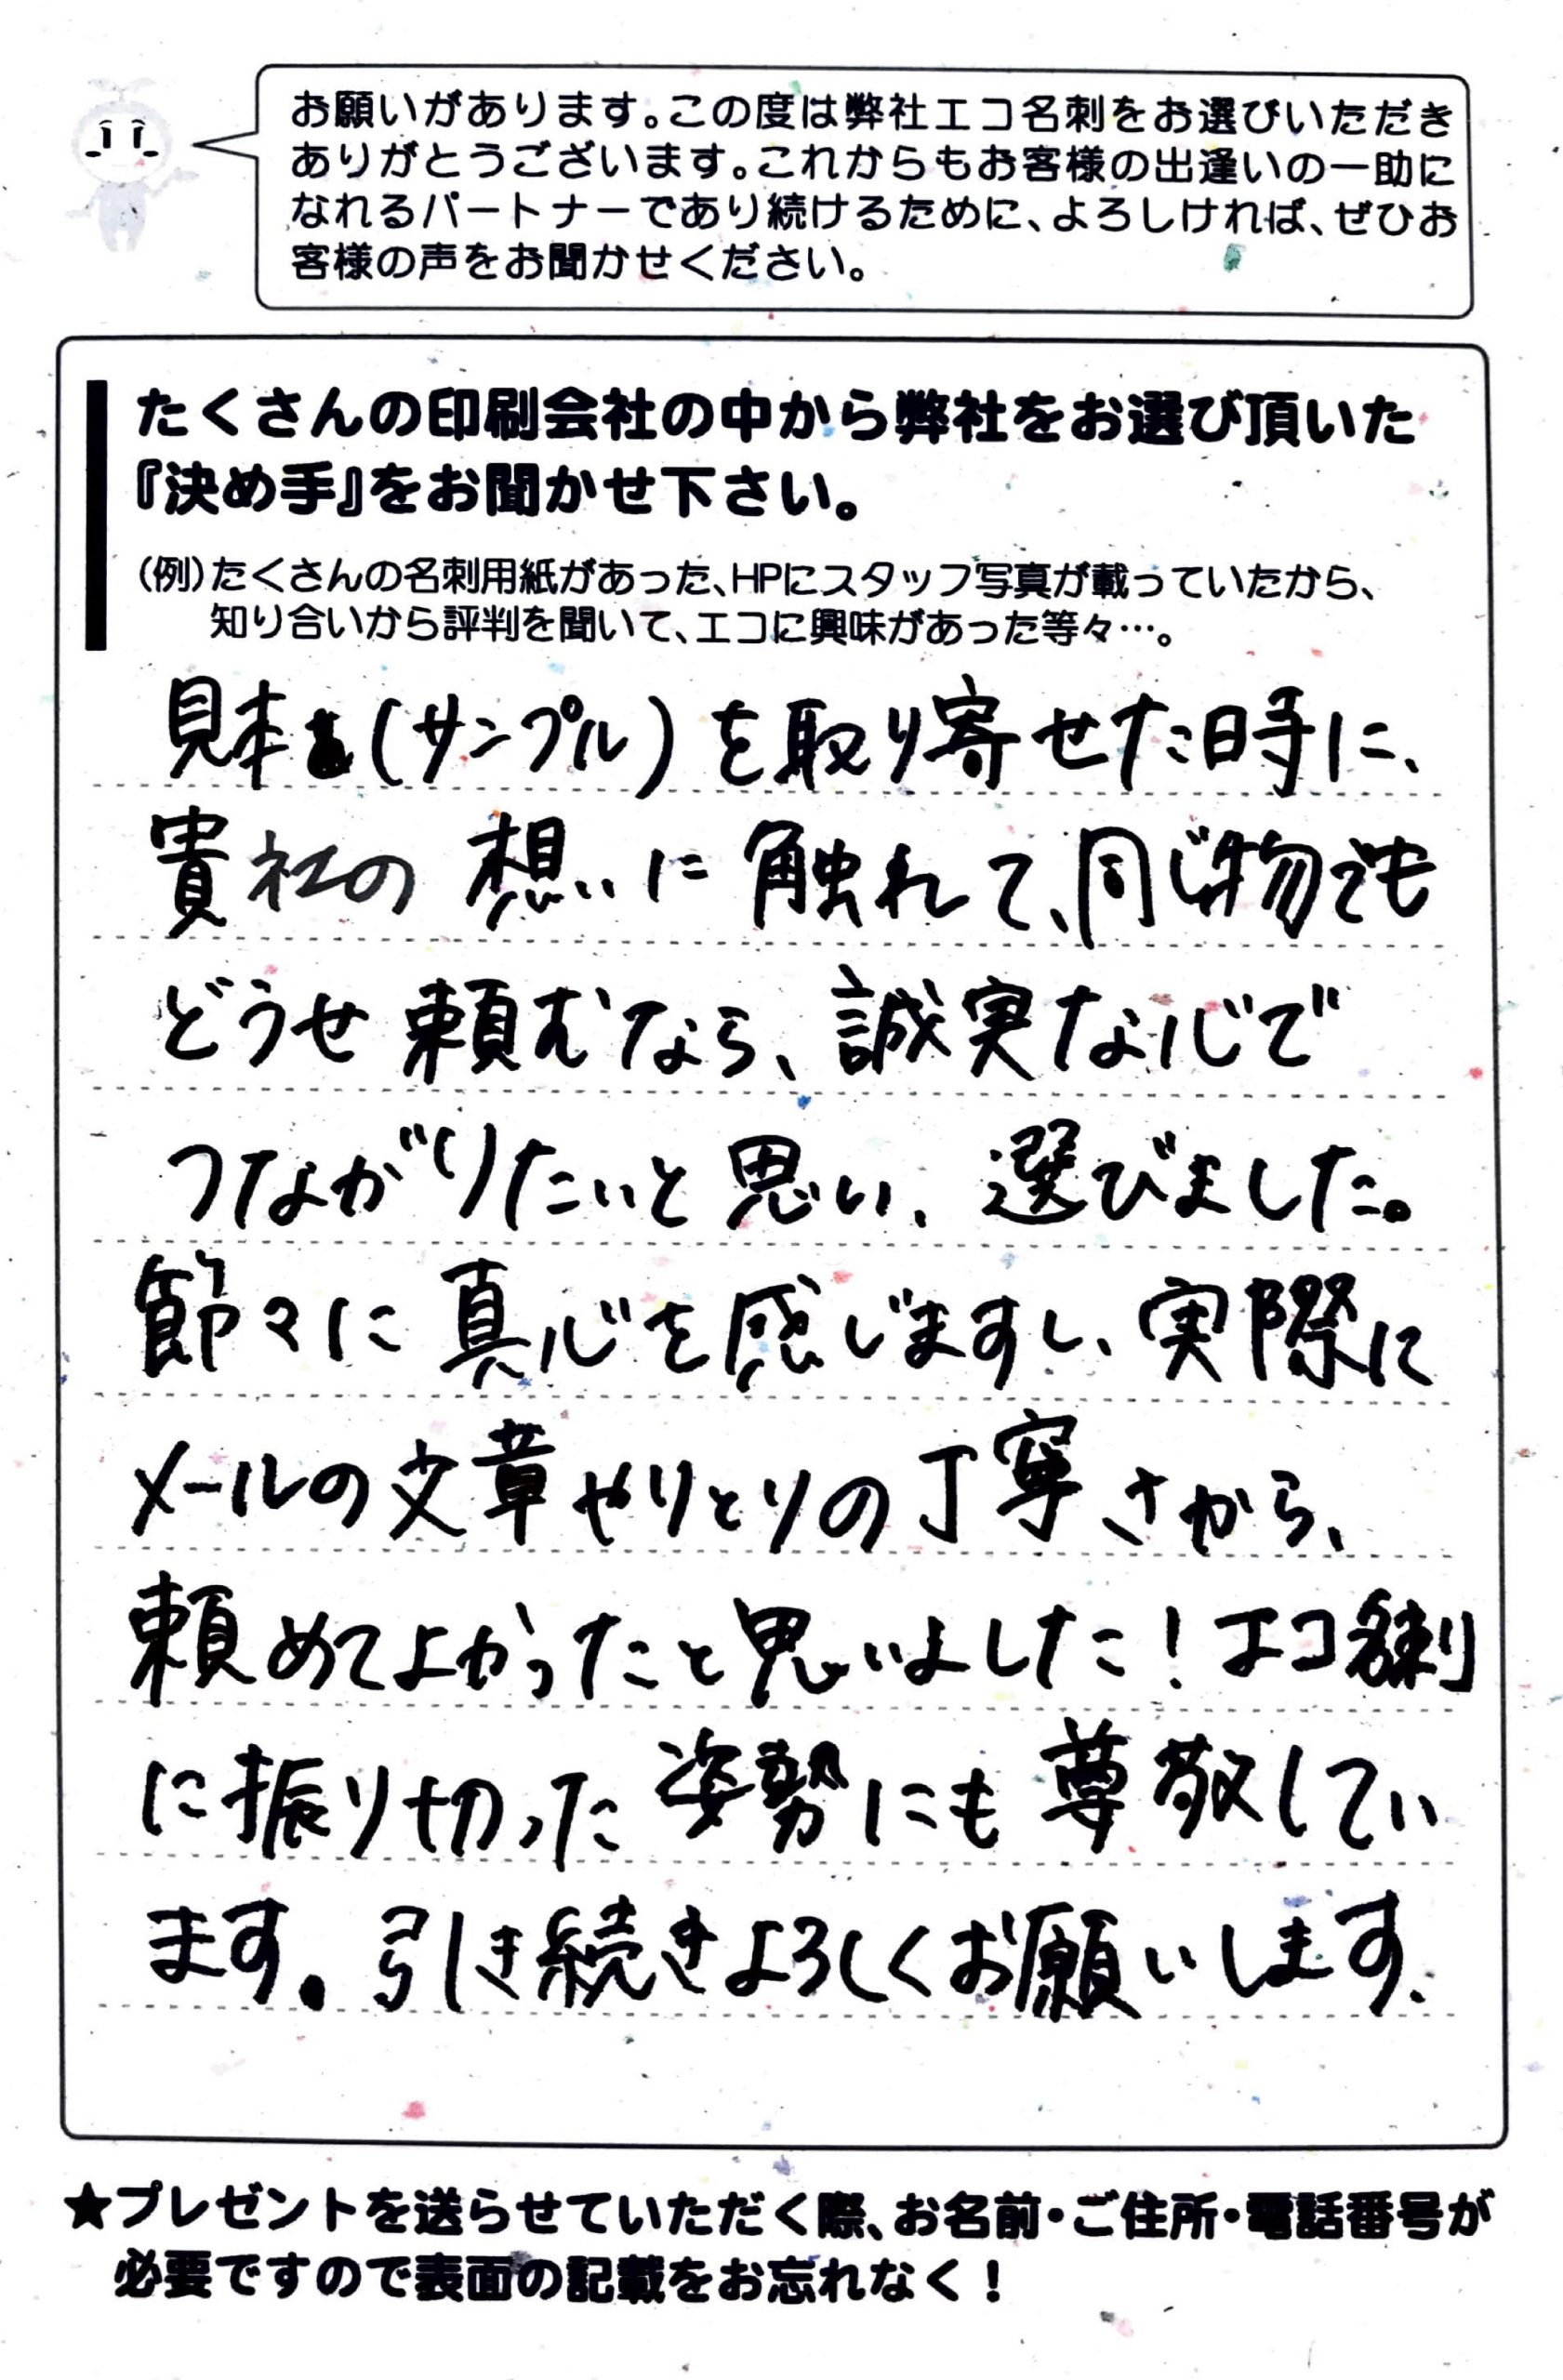 お願いがあります。この度は弊社エコ名刺をお選びいただき
ありがとうございます。これからもお客様の出逢いの一助に
なれるパートナーであり続けるために、よろしければ、ぜひお
客様の声をお聞かせください。
たくさんの印刷会社の中から弊社をお選び頂いた
『決め手』をお聞かせ下さい。
(例)たくさんの名刺用紙があった、HPにスタッフ写真が載っていたから、
知り合いから評判を聞いて、エコに興味があった等々…。
見本(サンプル)を取り寄せた時に、
貴社の想いに触れて、同じ物でも
どうせ頼むなら、誠実な心で
つながりたいと思い、選びました。
節々に真心を感じますし、実際に
メールの文章やりとりの丁寧さから、
頼めてよかったと思いました!エコ名刺
に振り切った姿勢にも尊敬してい
ます。引き続きよろしくお願いします.
★プレゼントを送らせていただく際、お名前・ご住所・電話番号が
必要ですので表面の記載をお忘れなく!